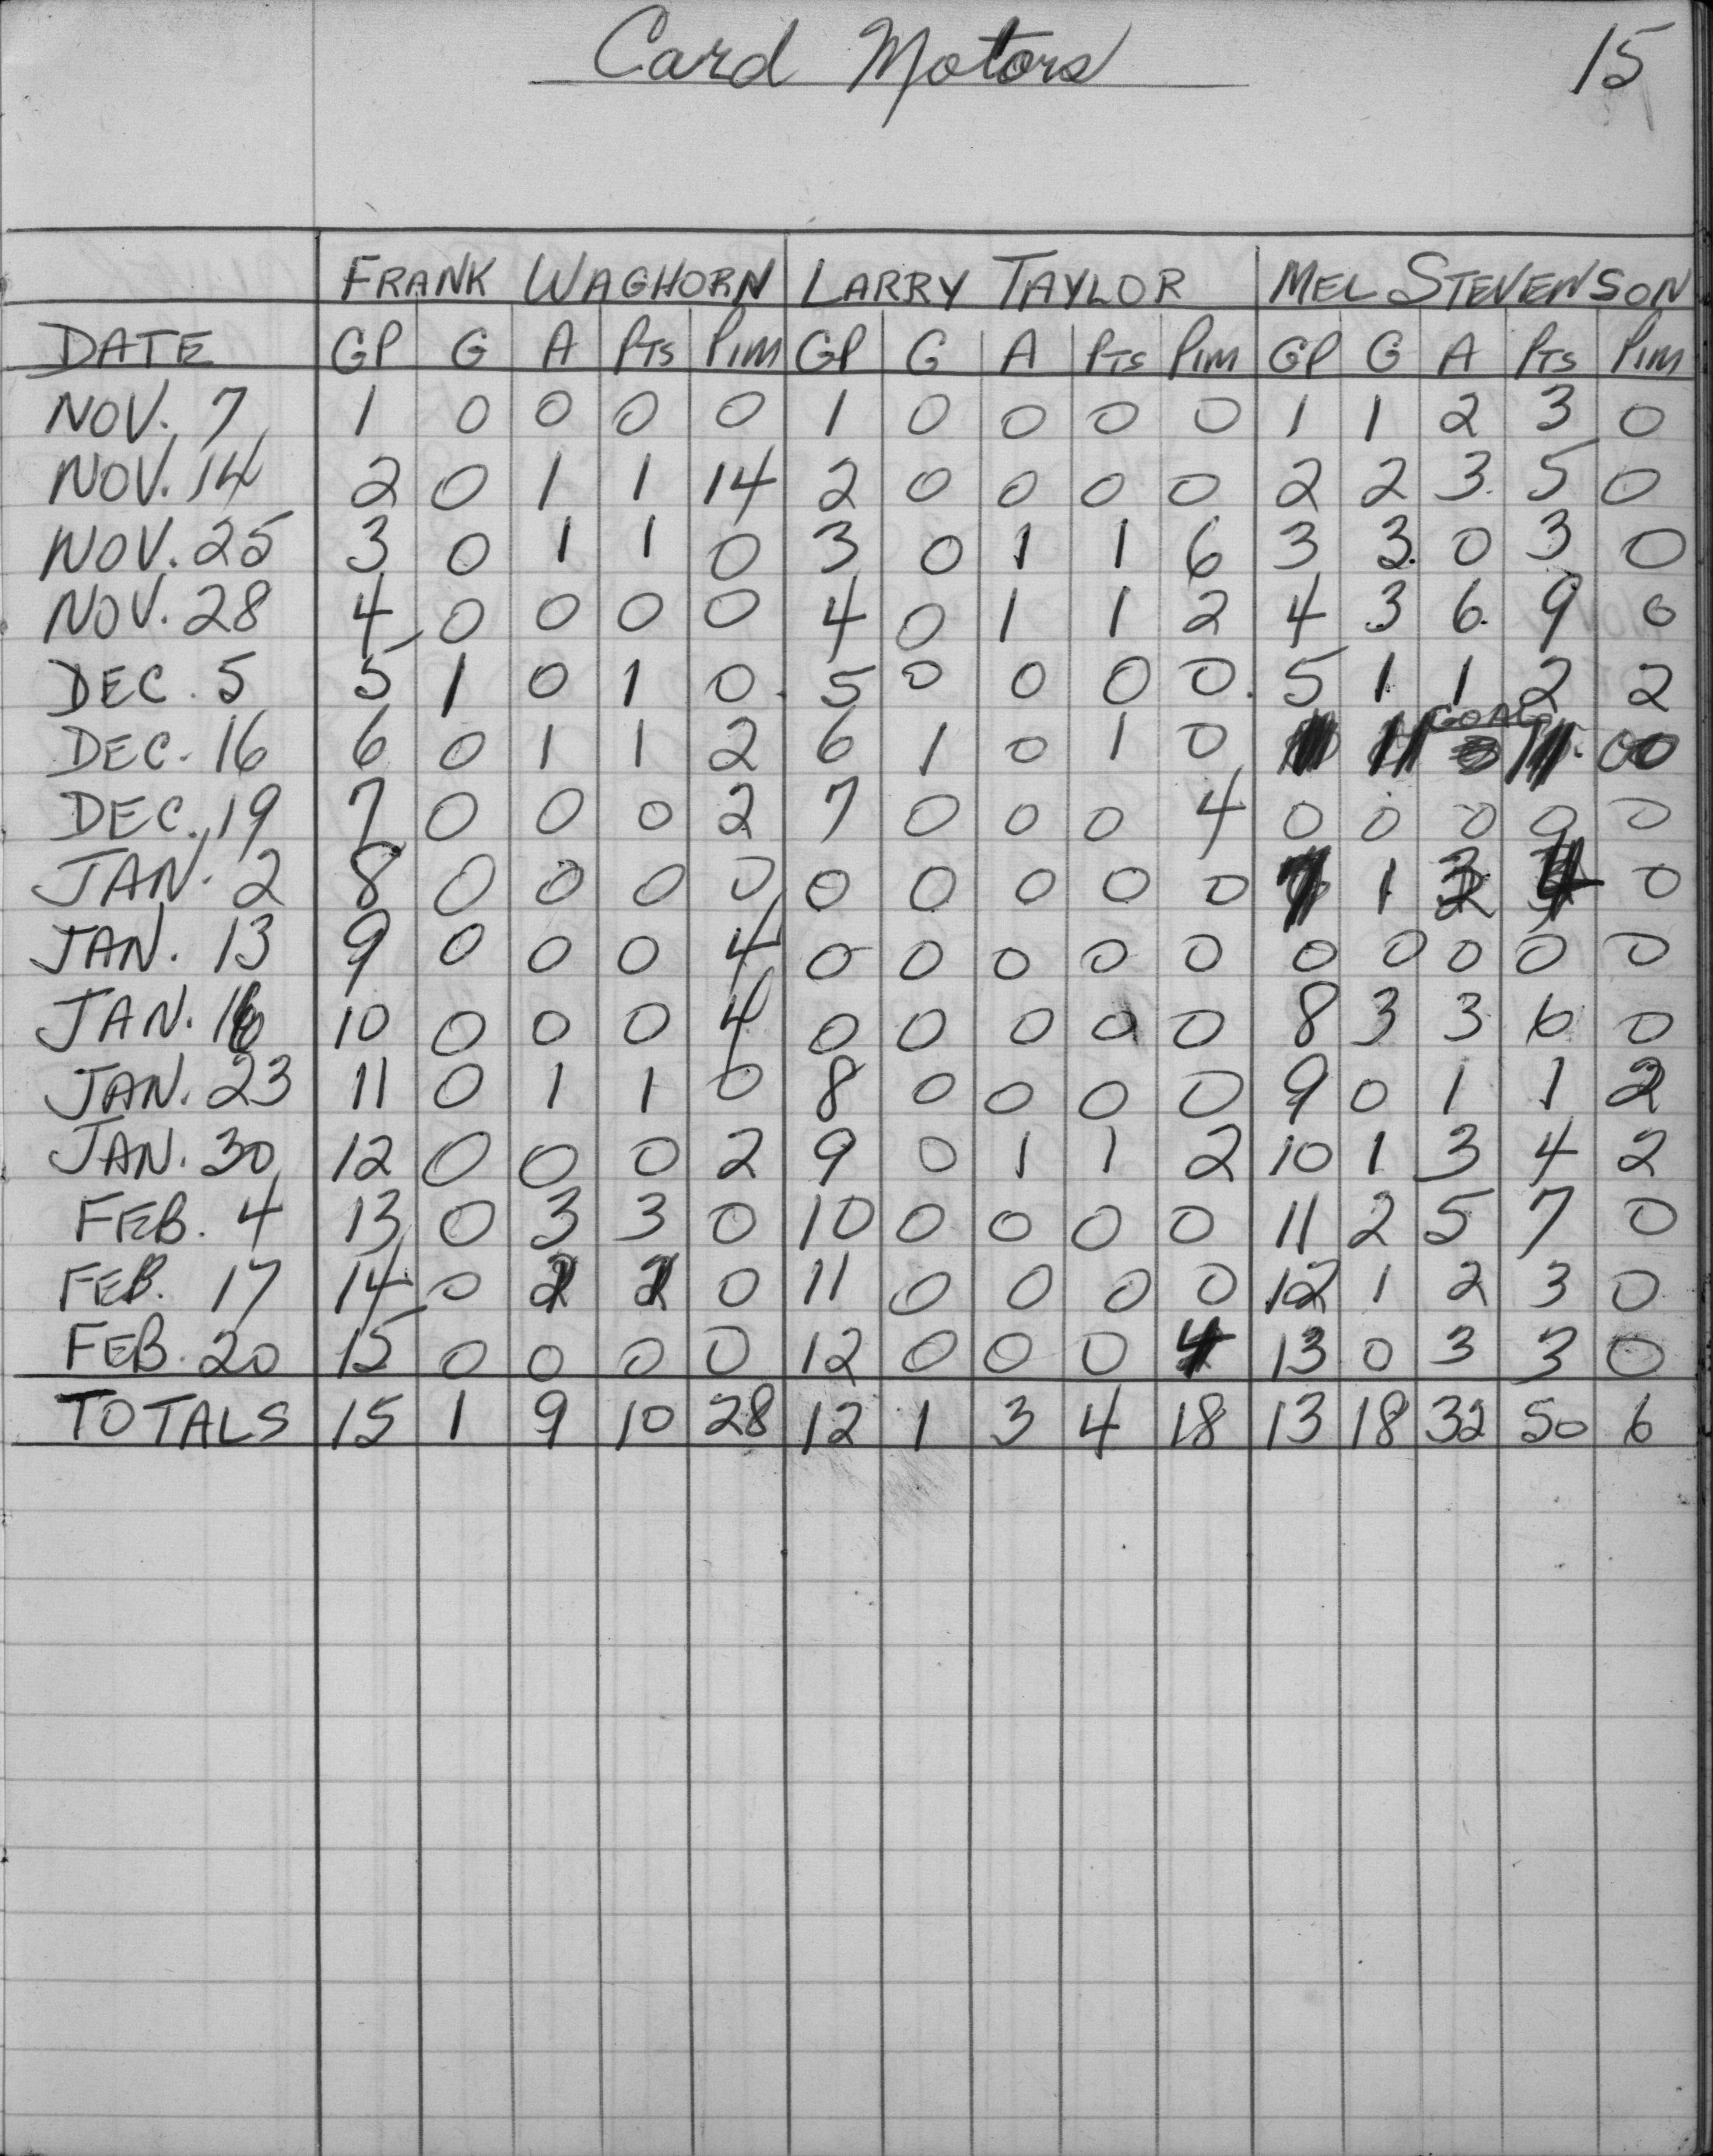 Card Motors 15
FRANK WAGHORN LARRY TAYLOR MEL STEVENSON
DATE GP G A PTS PIM GP G A PTS PIM GP G A PTS PIM
NOV. 7 1 0 0 0 0 1 0 0 0 0 1 1 2 3 0
NOV. 14 2 0 1 1 14 2 0 0 0 0 2 2 3 5 0
NOV. 25 3 0 1 1 0 3 0 1 1 6 3 3 0 3 0
NOV. 28 4 0 0 0 0 4 0 1 1 2 4 3 6 9 0
DEC. 5 5 1 0 1 0 5 0 0 0 0 5 1 1 2 2
GOAL
DEC. 16 6 0 1 1 2 6 1 0 1 0
DEC. 19 7 0 0 0 2 7 0 0 0 4 0 0 0 0 0
JAN. 2 8 0 0 0 0 0 0 0 0 0 7 1 4 0
JAN. 13 9 0 0 0 4 0 0 0 0 0 0 0 0 0 0
JAN. 16 10 0 0 0 4 0 0 0 0 0 8 3 3 6 0
JAN. 23 11 0 1 1 0 8 0 0 0 0 9 0 1 1 2
JAN. 30 12 0 0 0 2 9 0 1 1 2 10 1 3 4 2
FEB. 4 13 0 3 3 0 10 0 0 0 0 11 2 5 7 0
FEB. 17 14 0 0 11 0 0 0 0 12 1 2 3 0
FEB. 20 15 0 0 0 0 12 0 0 0 4 13 0 3 3 0
TOTALS 15 1 9 10 28 12 1 3 4 18 13 18 32 50 6